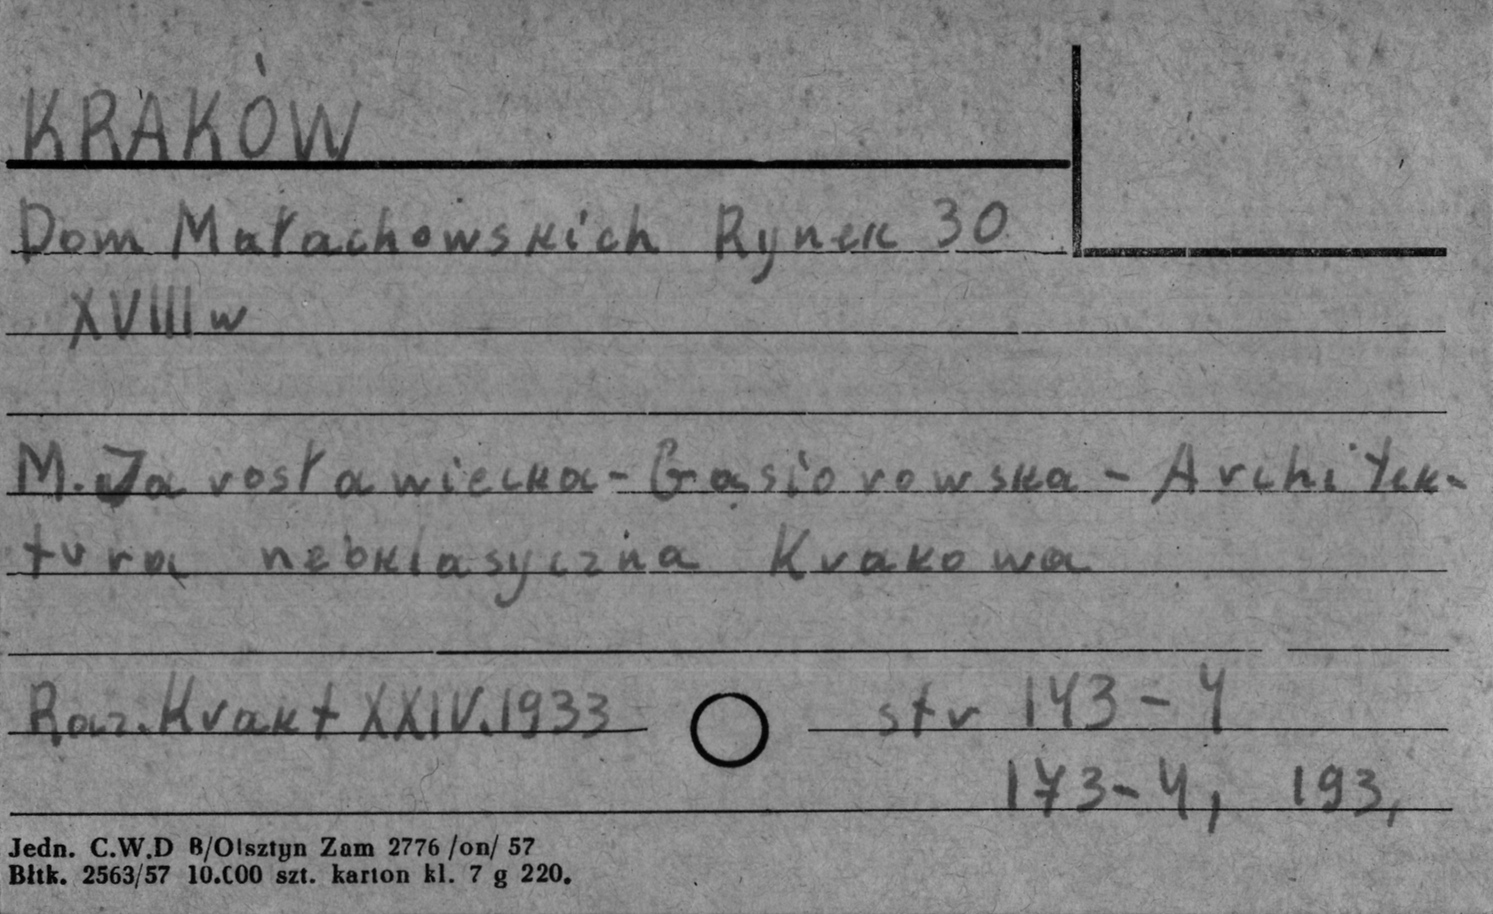 KRAKÓW
Dom Małachowskich Rynek 30
XVIII w
M. Jarosławiecka-Gąsiorowska - Architek-
tura neoklasyczna Krakowa
Rocz. Krak t XXIV.1933 str 143-4
173-4, 193,
Jedn. C.W.D B/Olsztyn Zam 2776 /on/ 57
Bltk. 2563/57 10.000 szt. karton kl. 7 g 220.